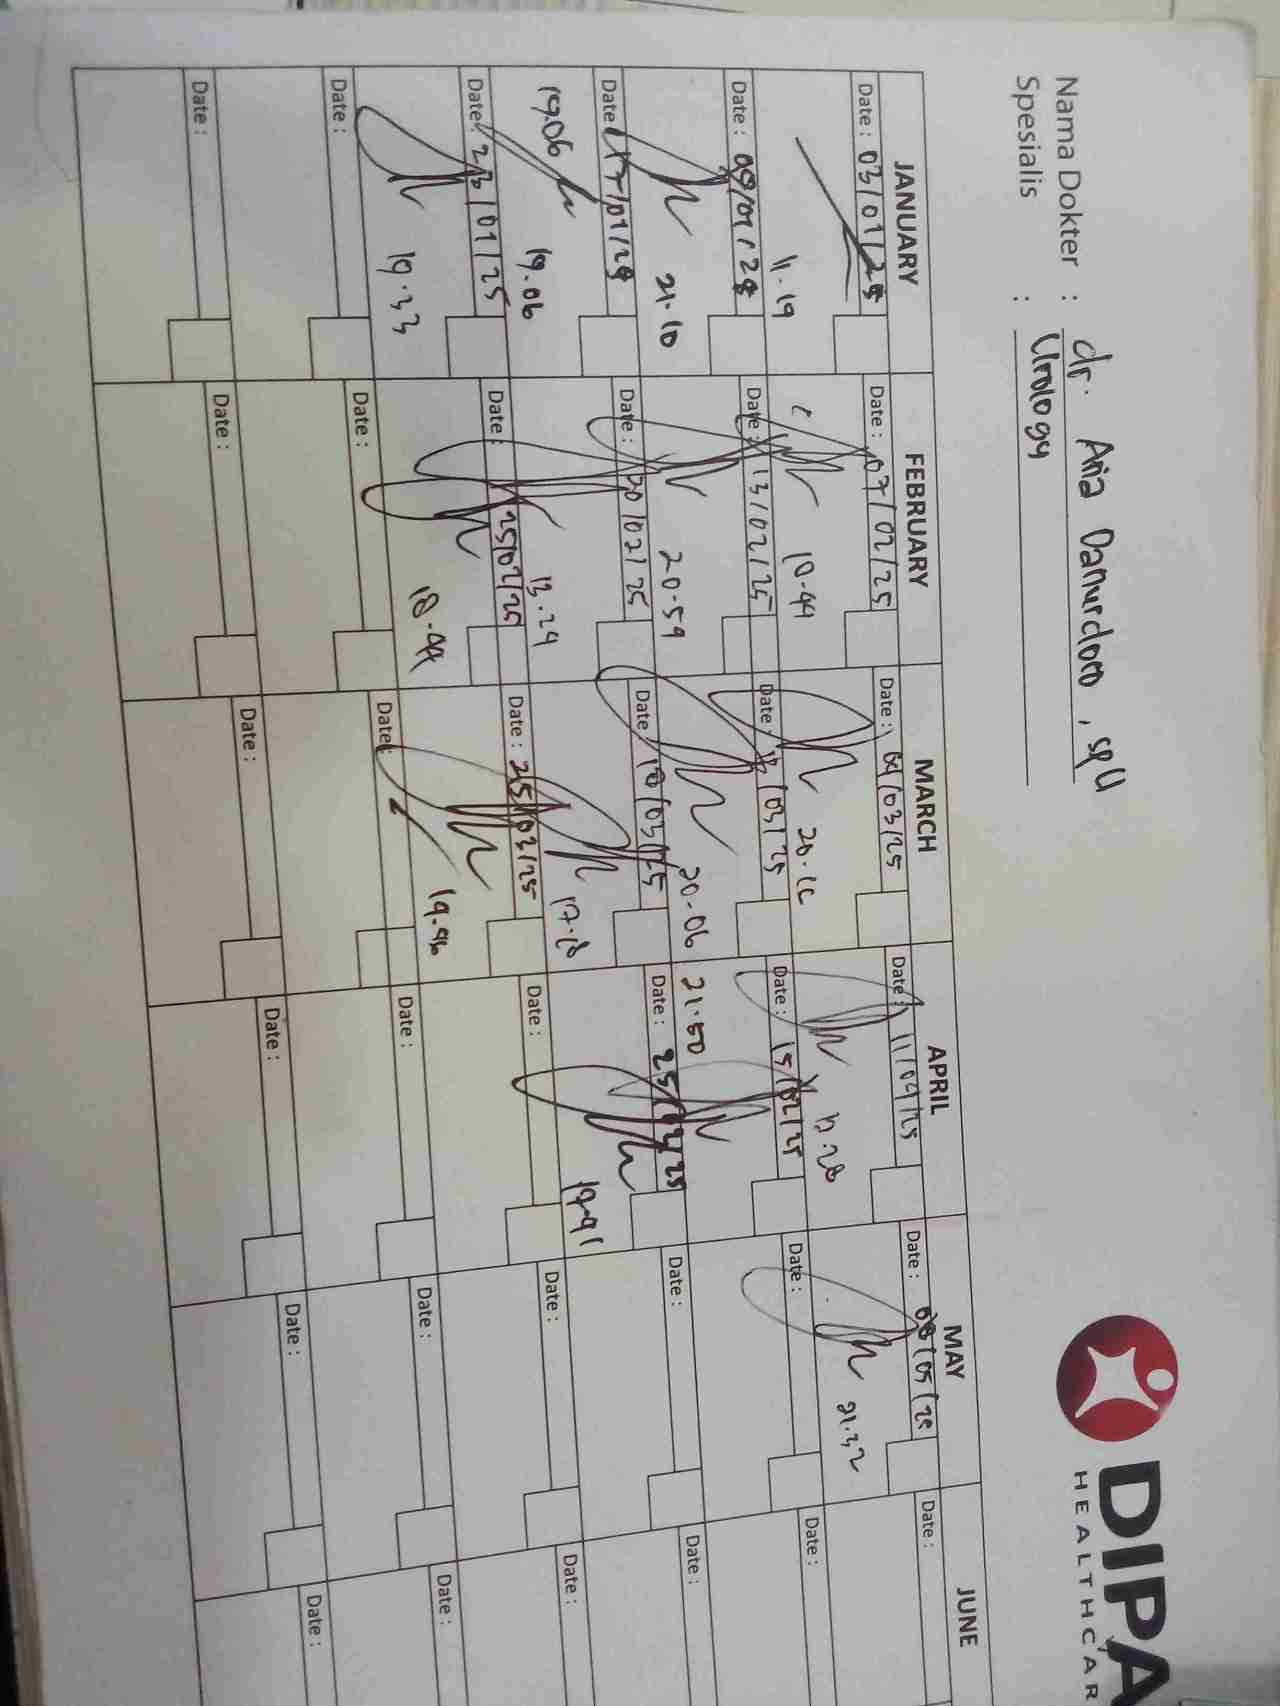 DIPA
HEALTHCAR
Nama Dokter : dr. Aria Danurdoro, spU
Spesialis : Urology
JANUARY FEBRUARY MARCH APRIL MAY JUNE
Date : 03/01/25 Date : 07/02/25 Date : 04/03/25 Date : 11/04/25 Date : 08/05/25 Date :
11.19 10.44 20.10 12.28 21.32
Date : 09/01/25 Date : 13/02/25 Date : 12/03/25 Date : 15/02/25 Date : Date :
21.10 20.59 20.06 21.50
Date : 17/01/25 Date : 20/02/25 Date : 18/03/25 Date : 25/ /25 Date : Date :
19.06 19.06 13.29 17.18 19.41
Date : 23/01/25 Date : 25/02/25 Date : 25/03/25 Date : Date : Date :
19.33 18.44 19.46
Date : Date : Date : Date : Date : Date :
Date : Date : Date : Date : Date : Date :